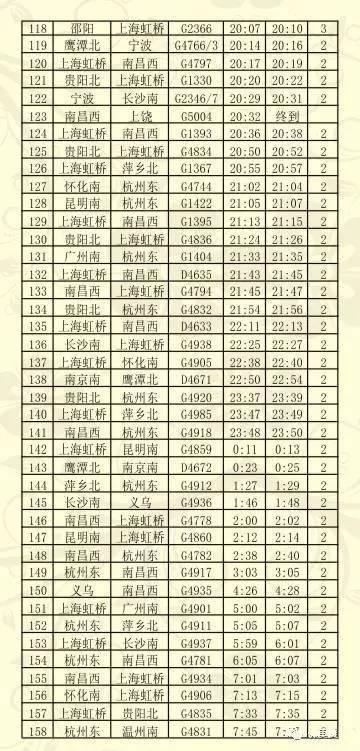 118 邵阳 上海虹桥 G2366 20:07 20:10 3
119 鹰潭北 宁波 G4766/3 20:14 20:16 2
120 上海虹桥 南昌西 G4797 20:17 20:19 2
121 贵阳北 上海虹桥 G1330 20:20 20:22 2
122 宁波 长沙南 G2346/7 20:29 20:31 2
123 南昌西 上饶 G5004 20:32 终到
124 上海虹桥 南昌西 G1393 20:36 20:38 2
125 贵阳北 上海虹桥 G4834 20:50 20:52 2
126 上海虹桥 萍乡北 G1367 20:55 20:57 2
127 怀化南 杭州东 G4744 21:02 21:04 2
128 昆明南 杭州东 G1422 21:05 21:07 2
129 上海虹桥 南昌西 G1395 21:13 21:15 2
130 贵阳北 上海虹桥 G4836 21:24 21:26 2
131 广州南 杭州东 G1404 21:33 21:35 2
132 上海虹桥 南昌西 D4635 21:43 21:45 2
133 南昌西 上海虹桥 G4794 21:45 21:47 2
134 贵阳北 杭州东 G4832 21:54 21:56 2
135 上海虹桥 南昌西 D4633 22:11 22:13 2
136 长沙南 上海虹桥 G4938 22:25 22:27 2
137 上海虹桥 怀化南 G4905 22:38 22:40 2
138 南京南 鹰潭北 D4671 22:50 22:54 2
139 贵阳北 杭州东 G4920 23:37 23:39 2
140 上海虹桥 萍乡北 G4985 23:47 23:49 2
141 南昌西 杭州东 G4918 23:48 23:50 2
142 上海虹桥 昆明南 G4859 0:11 0:13 2
143 鹰潭北 南京南 D4672 0:23 0:25 2
144 萍乡北 杭州东 G4912 1:27 1:29 2
145 长沙南 义乌 G4936 1:46 1:48 2
146 南昌西 上海虹桥 G4778 2:00 2:02 2
147 昆明南 上海虹桥 G4860 2:12 2:14 2
148 南昌西 杭州东 G4782 2:38 2:40 2
149 杭州东 南昌西 G4917 3:03 3:05 2
150 义乌 南昌西 G4935 4:26 4:28 2
151 上海虹桥 广州南 G4901 5:00 5:02 2
152 杭州东 萍乡北 G4911 5:05 5:07 2
153 上海虹桥 长沙南 G4937 5:59 6:01 2
154 杭州东 南昌西 G4781 6:05 6:07 2
155 上海虹桥 南昌西 G4934 7:01 7:03 2
156 怀化南 上海虹桥 G4906 7:13 7:15 2
157 上海虹桥 贵阳北 G4835 7:33 7:35 2
158 杭州东 温州南 G4831 7:45 2